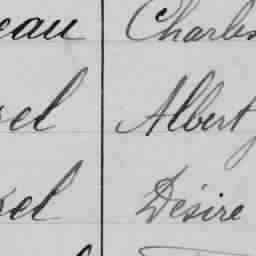 eau Charles
el Albert
el Désiré